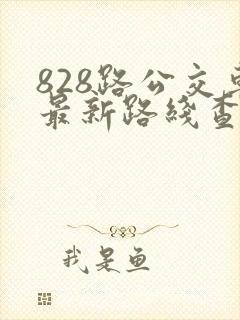 828路公交
最新路线查
我是鱼